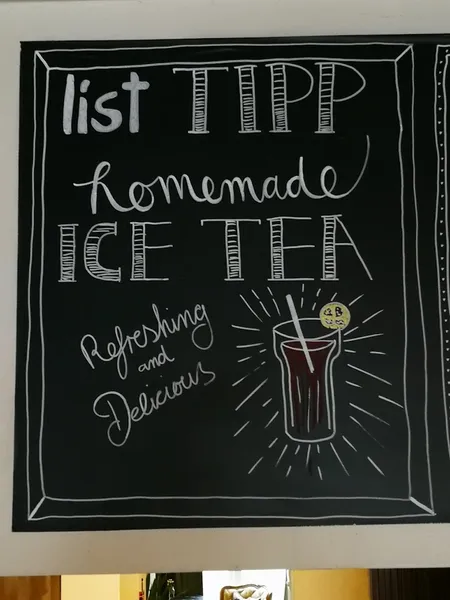 list TIPP
homemade
ICE TEA
Refreshing
and
Delicious